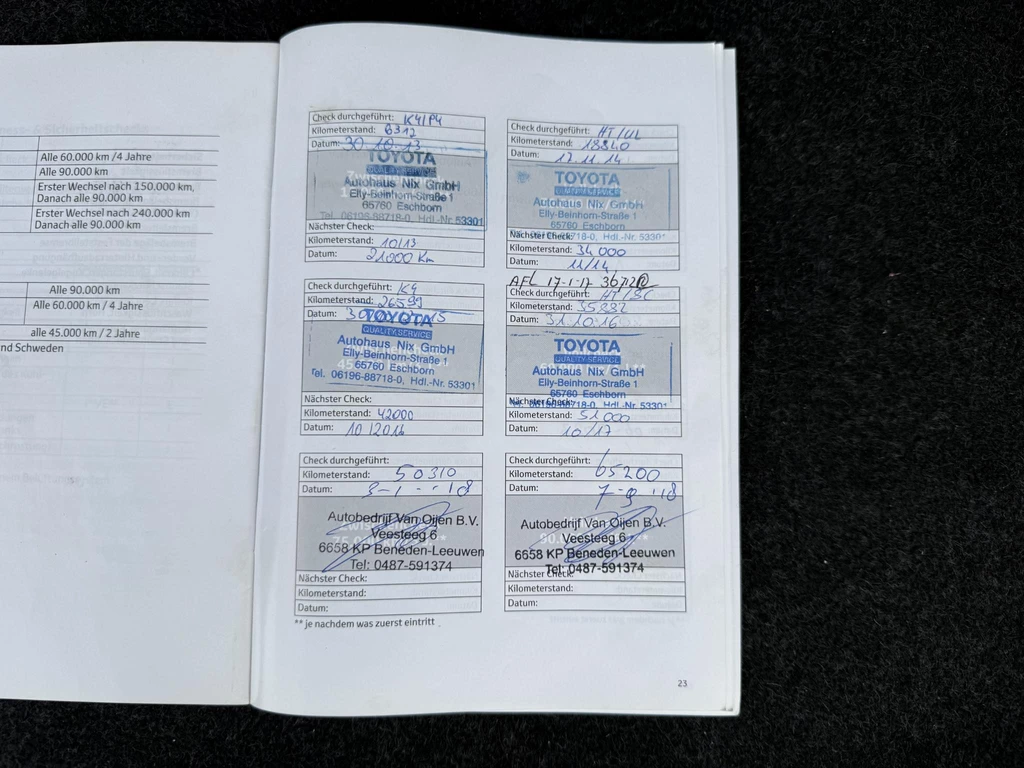 Alle 60.000 km /4 Jahre
Alle 90.000 km
Erster Wechsel nach 150.000 km,
Danach alle 90.000 km
Erster Wechsel nach 240.000 km
Danach alle 90.000 km
Alle 90.000 km
Alle 60.000 km / 4 Jahre
alle 45.000 km / 2 Jahre
nd Schweden
Check durchgeführt: K4/P4
Kilometerstand: 6312
Datum: 30.10.13
TOYOTA
QUALITY SERVICE
Autohaus Nix GmbH
Elly-Beinhorn-Straße 1
65760 Eschborn
Tel. 06196-88718-0, Hdl.-Nr. 53301
Nächster Check:
Kilometerstand: 10/13
Datum: 21000 Km
Check durchgeführt: HT/UL
Kilometerstand: 18840
Datum: 12.11.14
TOYOTA
Autohaus Nix GmbH
Elly-Beinhorn-Straße 1
65760 Eschborn
718-0, Hdl.-Nr. 5330
Nächster Check:
Kilometerstand: 34 000
Datum: 11/14
Check durchgeführt: K4
Kilometerstand: 26599
Datum: 30 15
TOYOTA
QUALITY SERVICE
Autohaus Nix GmbH
Elly-Beinhorn-Straße 1
65760 Eschborn
Tel. 06196-88718-0, Hdl.-Nr. 53301
Nächster Check:
Kilometerstand: 42000
Datum: 10 2016
AFL 17-1-17
Check durchgeführt: HT/SC
Kilometerstand: 35892
Datum: 31.10.16
TOYOTA
QUALITY SERVICE
Autohaus Nix GmbH
Elly-Beinhorn-Straße 1
65760 Eschborn
Nächster Check:
718-0, Hdl.-Nr. 53301
Kilometerstand: 51 000
Datum: 10/17
Check durchgeführt:
Kilometerstand: 50310
Datum: 3-1 - 18
Autobedrijf Van Oijen B.V.
Veesteeg 6
6658 KP Beneden-Leeuwen
Tel: 0487-591374
Nächster Check:
Kilometerstand:
Datum:
Check durchgeführt:
Kilometerstand: 65200
Datum: 7-9 '18
Autobedrijf Van Oijen B.V.
Veesteeg 6
6658 KP Beneden-Leeuwen
Tel: 0487-591374
Nächster Check:
Kilometerstand:
Datum:
** je nachdem was zuerst eintritt
23